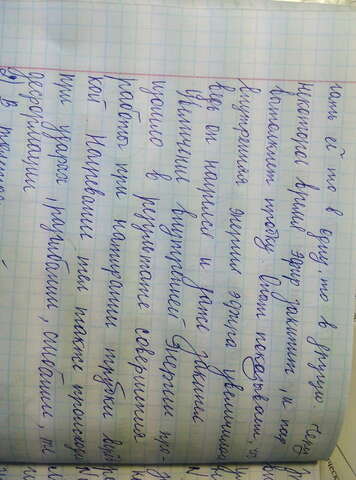 гать её то в одну, то в другую. Через
некоторое время эфир закипит, и пар
вытолкнет пробку. Опыт показывает, что
внутренняя энергия эфира увеличилась
ведь он нагрелся и даже закипел
Увеличение внутренней энергии про-
изошло в результате совершения
работы при натирании трубки верёв
кой Нагревание тел также происходи
при ударах, разгибании, сгибании, т.е.
деформации